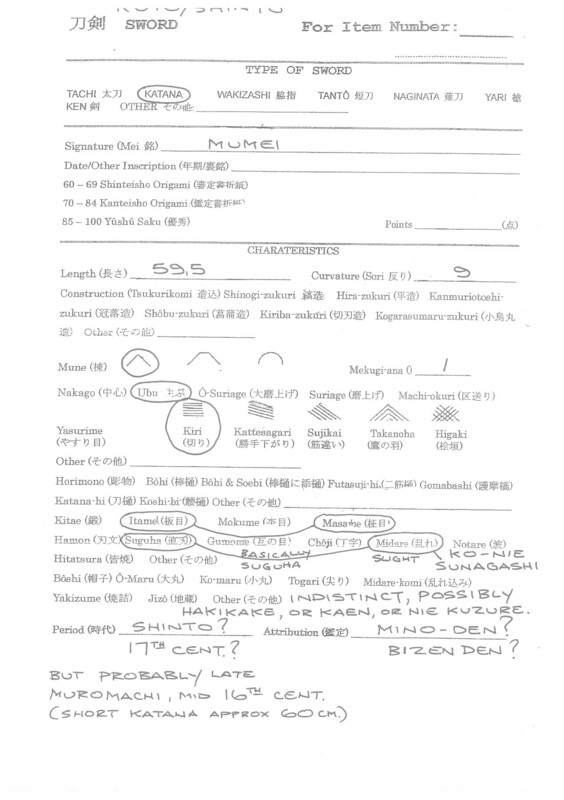 KOTO/SHINTO
刀剣 SWORD For Item Number:
TYPE OF SWORD
TACHI 太刀 KATANA WAKIZASHI 脇指 TANTŌ 短刀 NAGINATA 薙刀 YARI 槍
KEN 剣 OTHER その他
Signature (Mei 銘) MUMEI
Date/Other Inscription (年期/裏銘)
60 – 69 Shinteisho Origami (審定書折紙)
70 – 84 Kanteisho Origami (鑑定書折紙)
85 – 100 Yûshû Saku (優秀) Points (点)
CHARATERISTICS
Length (長さ) 59,5 Curvature (Sori 反り) 9
Construction (Tsukurikomi 造込) Shinogi-zukuri 鎬造 Hira-zukuri (平造) Kanmuriotoshi-
zukuri (冠落造) Shôbu-zukuri (菖蒲造) Kiriba-zukuri (切刃造) Kogarasumaru-zukuri (小烏丸
造) Other (その他)
Mune (棟) Mekugi-ana () 1
Nakago (中心) Ubu Ô-Suriage (大磨上げ) Suriage (磨上げ) Machi-okuri (区送り)
Yasurime Kiri Kattesagari Sujikai Takanoha Higaki
(やすり目) (切り) (勝手下がり) (筋違い) (鷹の羽) (桧垣)
Other (その他)
Horimono (彫物) Bôhi (棒樋) Bôhi & Soebi (棒樋に添樋) Futasuji-hi (二筋樋) Gomabashi (護摩橋)
Katana-hi (刀樋) Koshi-bi (腰樋) Other (その他)
Kitae (鍛) Itame (板目) Mokume (本目) Masame (柾目)
Hamon (刃文) Suguha (直刃) Gunome (互の目) Chôji (丁字) Midare (乱れ) Notare (波)
BASICALLY SUGUHA SLIGHT KO-NIE SUNAGASHI
Hitatsura (皆焼) Other (その他)
Bôshi (帽子) Ô-Maru (大丸) Ko-maru (小丸) Togari (尖り) Midare-komi (乱れ込み)
Yakizume (焼詰) Jizô (地蔵) Other (その他) INDISTINCT, POSSIBLY
HAKIKAKE, OR KAEN, OR NIE KUZURE.
Period (時代) SHINTO? Attribution (鑑定) MINO-DEN?
17TH CENT.? BIZEN DEN?
BUT PROBABLY LATE
MUROMACHI, MID 16TH CENT.
(SHORT KATANA APPROX 60CM.)